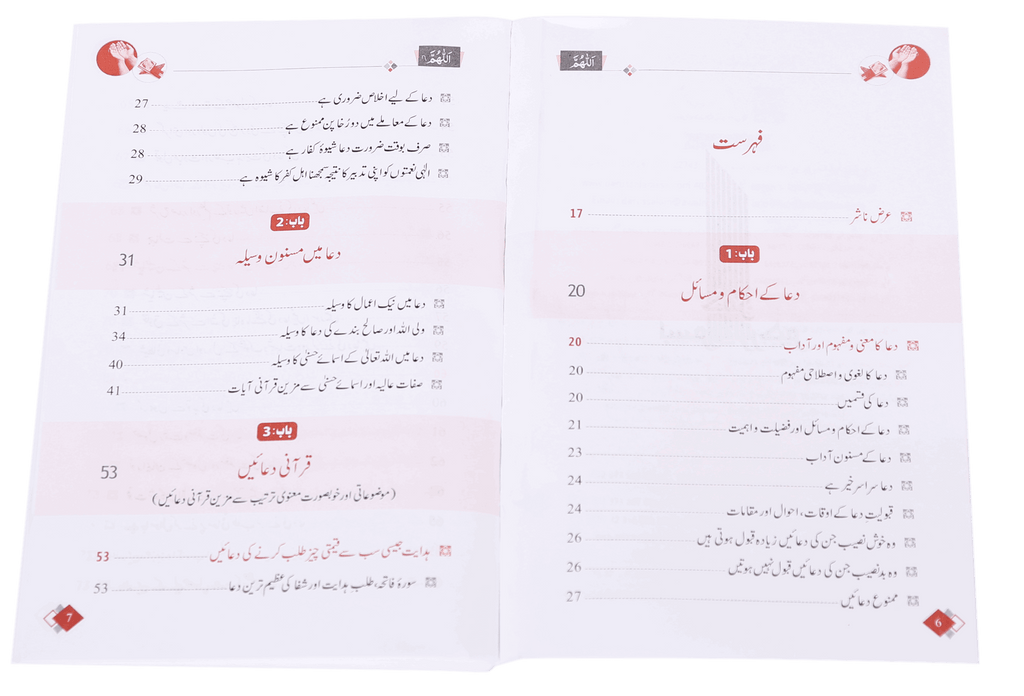 اَللّٰهُمَّ
فہرست
عرض ناشر 17
باب:1
دعا کے احکام و مسائل 20
دعا کا معنی و مفہوم اور آداب 20
دعا کا لغوی و اصطلاحی مفہوم 20
دعا کی قسمیں 20
دعا کے احکام و مسائل اور فضیلت و اہمیت 21
دعا کے مسنون آداب 23
دعا سراسر خیر ہے 24
قبولیتِ دعا کے اوقات، احوال اور مقامات 24
وہ خوش نصیب جن کی دعائیں زیادہ قبول ہوتی ہیں 26
وہ بدنصیب جن کی دعائیں قبول نہیں ہوتیں 26
ممنوع دعائیں 27
6
اَللّٰهُمَّ
دعا کے لیے اخلاص ضروری ہے 27
دعا کے معاملے میں دورُخا پن ممنوع ہے 28
صرف بوقت ضرورت دعا شیوۂ کفار ہے 28
الٰہی نعمتوں کو اپنی تدبیر کا نتیجہ سمجھنا اہل کفر کا شیوہ ہے 29
باب:2
دعا میں مسنون وسیلہ 31
دعا میں نیک اعمال کا وسیلہ 31
ولی اللہ اور صالح بندے کی دعا کا وسیلہ 34
دعا میں اللہ تعالیٰ کے اسمائے حسنیٰ کا وسیلہ 40
صفات عالیہ اور اسمائے حسنیٰ سے مزین قرآنی آیات 41
باب:3
قرآنی دعائیں 53
(موضوعاتی اور خوبصورت معنوی ترتیب سے مزین قرآنی دعائیں)
ہدایت جیسی سب سے قیمتی چیز طلب کرنے کی دعائیں 53
سورۂ فاتحہ، طلب ہدایت اور شفا کی عظیم ترین دعا 53
7